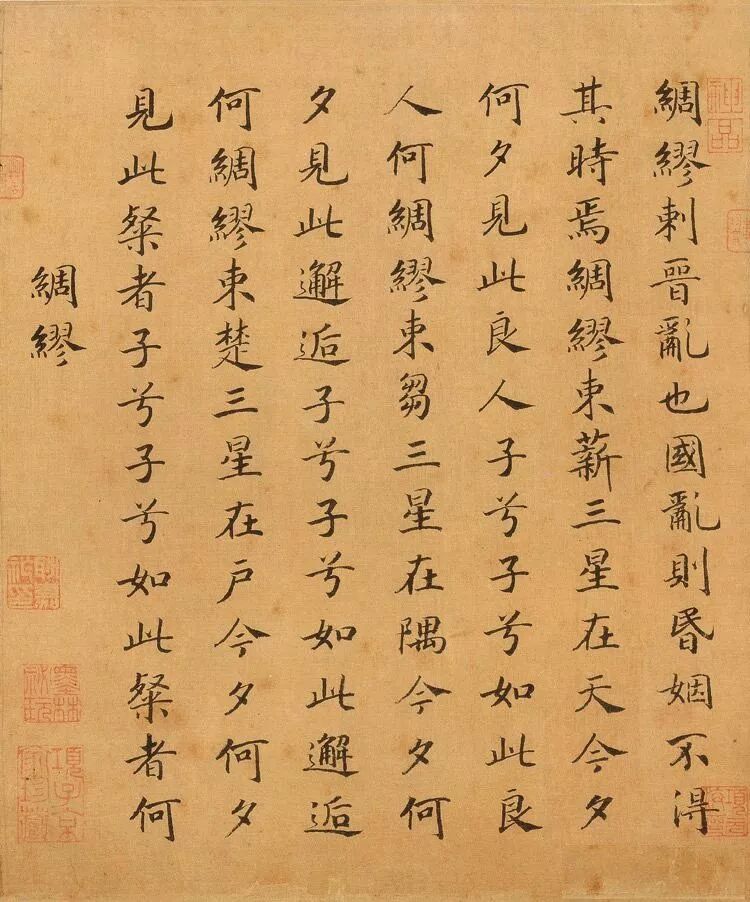 綢繆刺晉亂也國亂則昏姻不淂
其時焉綢繆束薪三星在天今夕
何夕見此良人子兮子兮如此良
人何綢繆束芻三星在隅今夕何
夕見此邂逅子兮子兮如此邂逅
何綢繆束楚三星在戶今夕何夕
見此粲者子兮子兮如此粲者何
綢繆
神品